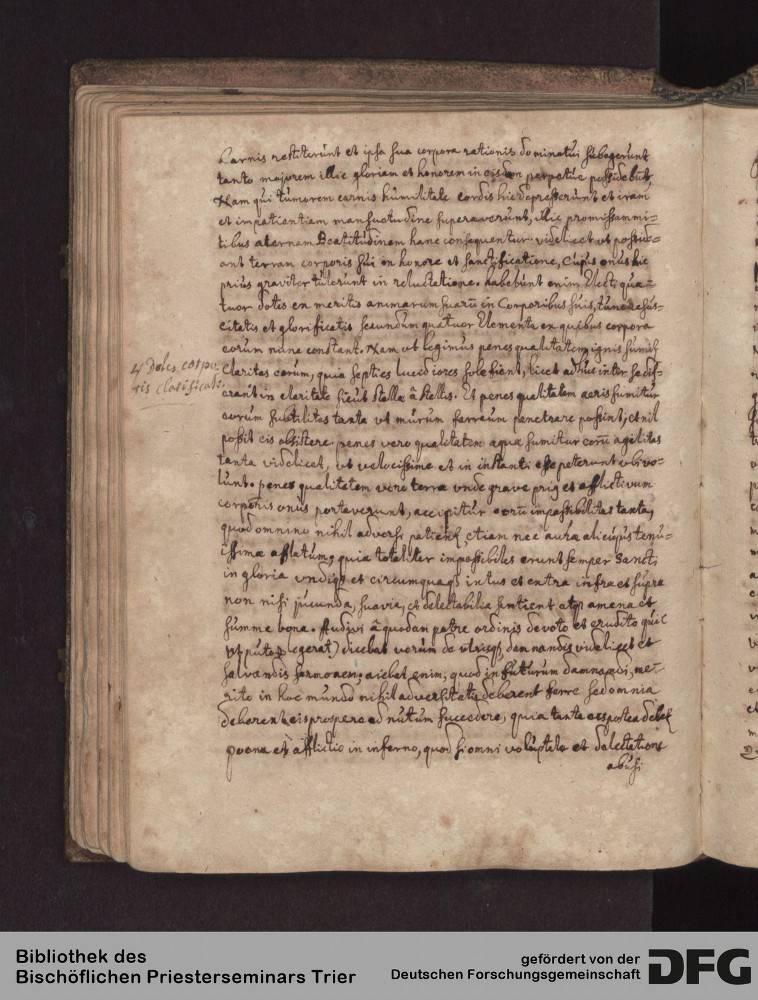 Carnis restiterunt et ipsa sua corpora rationis dominatui subegerunt
tanto majorem illic gloriam et honorem in eisdem perpetue possidebunt,
Nam qui tumorem carnis humilitate cordis hic depresserunt et iram
et impatientiam mansuetudine superaverunt, illic promissam mi=
tibus aternam Beatitudinem hanc consequentur videlicet ut possid=
eant terram corporis sui in honore et sanctificatione, Cujus onus hic
prius graviter tulerunt in reluctatione. habebunt enim Electi qua=
tuor dotes ex meritis animarum suarū in Corporibus suis, tunc resus=
citatis et glorificatis secundum quatuor Elementa ex quibus corpora
eorum nunc constant. Nam ut legimus penes qualitatem ignis sumitʳ
Claritas eorum, quia septies lucidiores sole fient, licet adhuc inter se dif=
erant in claritate sicut stella â stellis. Et penes qualitatem aeris sumitur
eorum subtilitas tanta ut murum ferreum penetrare possint, et nil
possit eis obsistere. penes vero qualitatem aqua sumitur eorū agilitas
tanta videlicet, ut velocissime et in instanti esse poterunt ubi vo=
lunt. penes qualitatem vero terra unde grave priꝯ et afflictivum
corporis onus portaverunt, accipitur eorū impassibilitas tanta,
quod omnino nihil adversi patient etiam nec aura alicujus tenu=
issima afflatum, quia totaliter impassibiles erunt semper Sancti
in gloria undiqꝫ et circumquaqꝫ intus et extra infra et supra
non nisi jucunda, suavia, et delectabilia sentient atqꝫ amena et
summe bona. Audivi â quodam patre ordinis devoto et erudito qui (
ut puto legerat) dicebat verum de utrisqꝫ damnandis videlicet et
salvandis sermonem, aiebat enim, quod in futurum damnandi, me-
rito in hoc mundo nihil adversitatis deberent ferre sed omnia
deberent eis prospere ad nutum succedere, quia tanta eis postea debetʳ
poena et afflictio in inferno, quod si omni voluptate et delectatione
abusi
4 Dotes corpo
ris clarificati.
Bibliothek des
Bischöflichen Priesterseminars Trier
gefördert von der
Deutschen Forschungsgemeinschaft
DFG